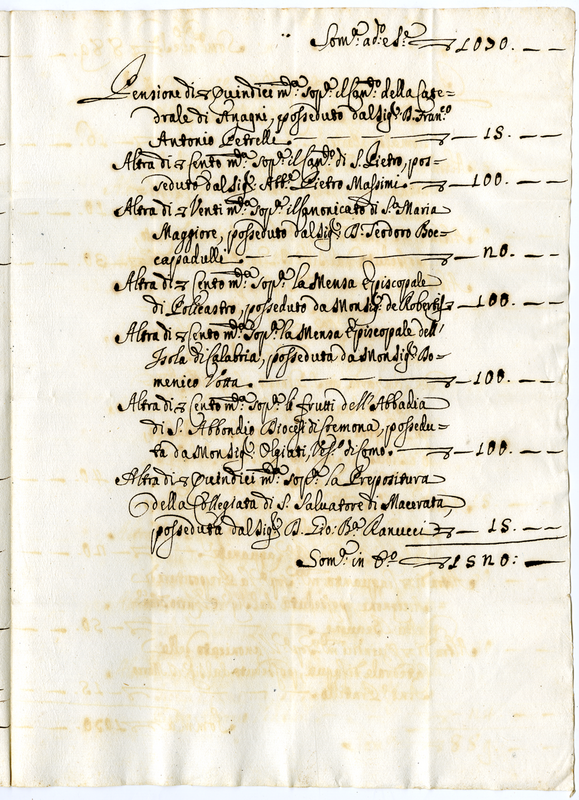 Som.ª ad.º e s.ª 1030. — —
Pensione di ∇ Quindici m.ª sop.ª il Can.to della Cate=
drale di Anagni, posseduto dal Sig.r D. Fran.co
Antonio Petrelle. — 15. — —
Altra di ∇ Cento m.ª sop.ª il Can.to di S. Pietro, pos=
seduto dal Sig.r Att.º Pietro Massimi. — 100. — —
Altra di ∇ Venti m.ª sop.ª il Canonicato di S.ª Maria
Maggiore, posseduto dal Sig.r D. Teodoro Boc=
cappadulli. — 20. — —
Altra di ∇ Cento m.ª sop.ª la Mensa Episcopale
di Policastro, posseduto da Monsig.r de Robertis — 100. — —
Altra di ∇ Cento m.ª sop.ª la Mensa Episcopale dell'
Isola di Calabria, posseduta da Monsig.r Do=
menico Votta. — 100. — —
Altra di ∇ Cento m.ª sop.ª li frutti dell'Abbadia
di S. Abbondio Diocesi di Cremona, possedu=
ta da Monsig.r Olgiati, Ves.º di Como. — 100. — —
Altra di ∇ Quindici m.ª sop.ª la Prepositura
della Collegiata di S. Salvatore di Macerata,
posseduta dal Sig.r D. Ba Ranucci — 15. — —
Som.ª in 1520: — —